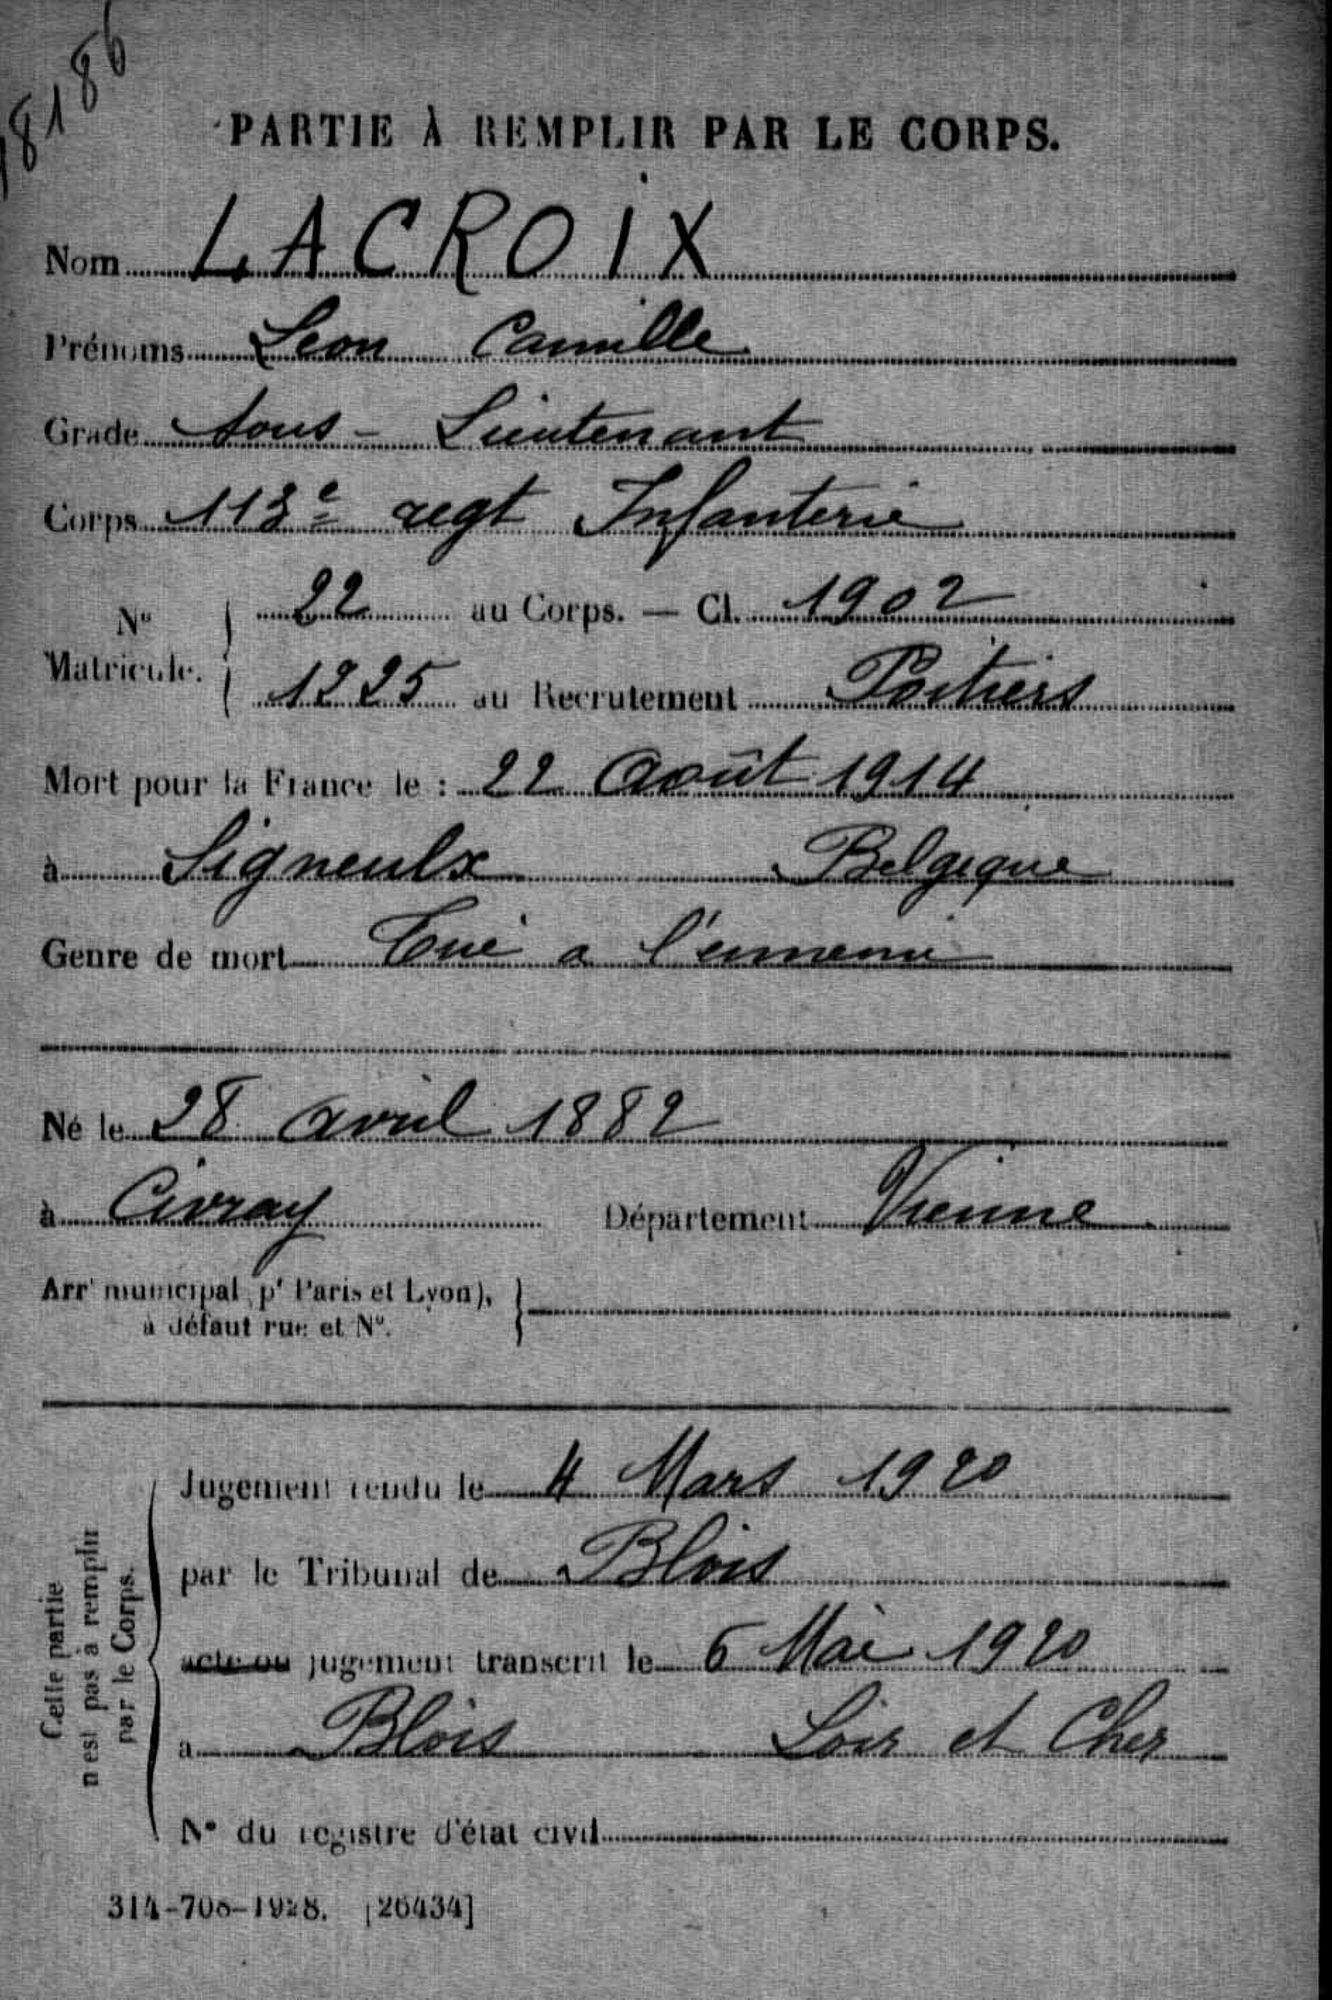 8186
PARTIE À REMPLIR PAR LE CORPS.
Nom LACROIX
Prénoms Leon Camille
Grade Sous-Lieutenant
Corps 113e regt Infanterie
No Matricule. 22 au Corps. — Cl. 1902
1225 au Recrutement Poitiers
Mort pour la France le : 22 Août 1914
à Signeulx Belgique
Genre de mort Tué a l'ennemi
Né le 28 avril 1882
à Civray Département Vienne
Arrt municipal (pr Paris et Lyon),
à défaut rue et No.
Cette partie
n'est pas à remplir
par le Corps.
Jugement rendu le 4 Mars 1920
par le Tribunal de Blois
acte ou jugement transcrit le 6 Mai 1920
à Blois Loir et Cher
No du registre d'état civil
314-708-1928. [26434]